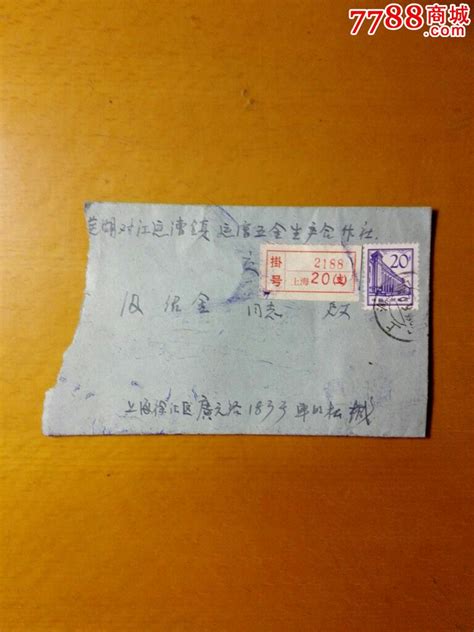 7788商城
.com
芜湖对江运漕镇 运漕五金生产合作社
掛号 2188
上海20(支)
20
同志 收
上海徐汇区廣元路183号